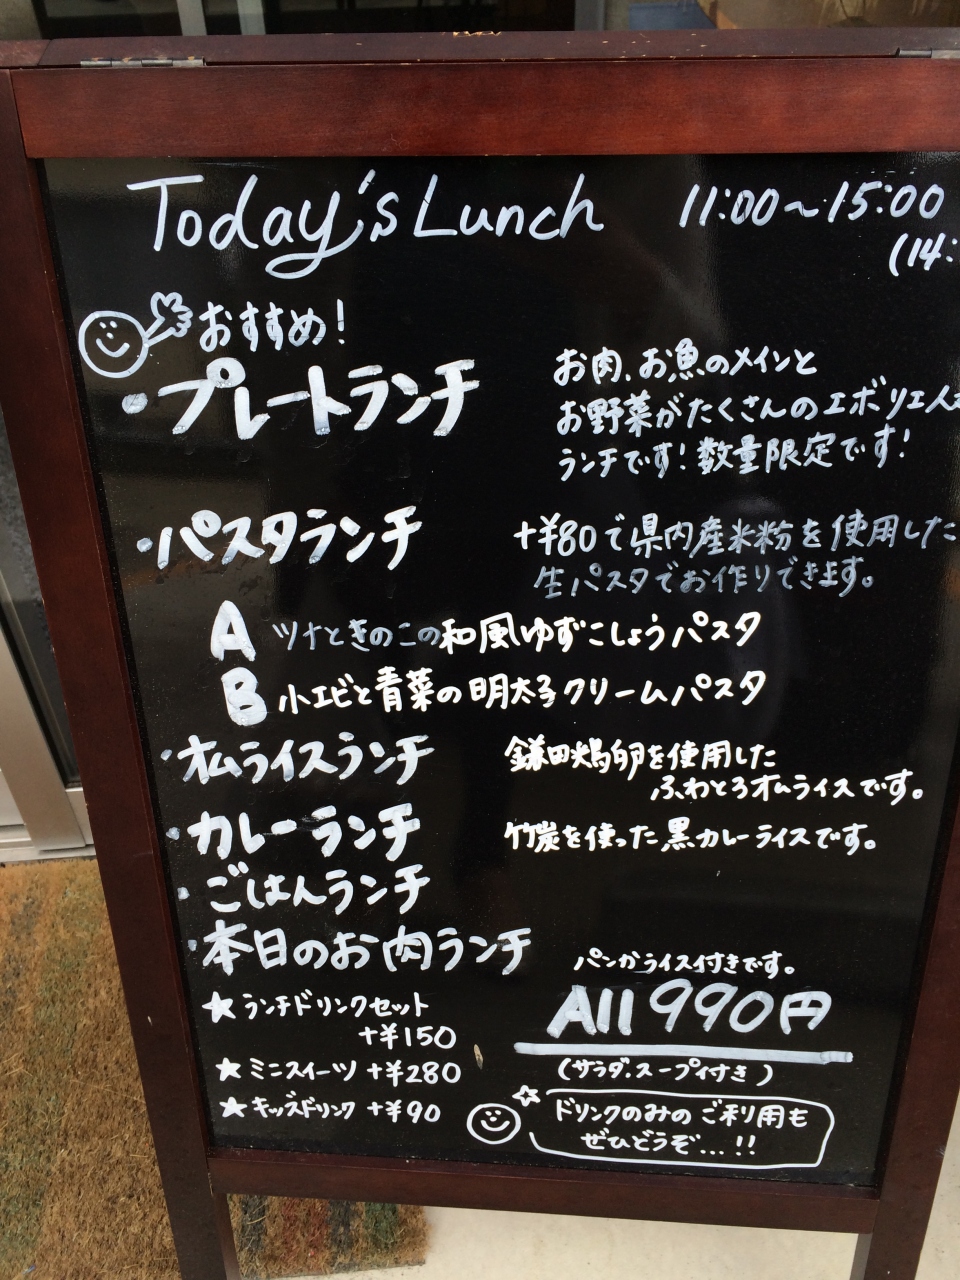 Today's Lunch 11:00~15:00
(14:
おすすめ!
・プレートランチ
お肉、お魚のメインと
お野菜がたくさんのエボリエ人
ランチです!数量限定です!
・パスタランチ
+¥80で県内産米粉を使用した
生パスタでお作りできます。
A ツナときのこの和風ゆずこしょうパスタ
B 小エビと青菜の明太子クリームパスタ
・オムライスランチ
鎌田鶏卵を使用した
ふわとろオムライスです。
・カレーランチ 竹炭を使った黒カレーライスです。
・ごはんランチ
・本日のお肉ランチ
パンかライス付きです。
★ランチドリンクセット
+¥150
All 990円
★ミニスイーツ +¥280
(サラダ・スープ付き)
★キッズドリンク +¥90
☆ドリンクのみのご利用も
ぜひどうぞ...!!